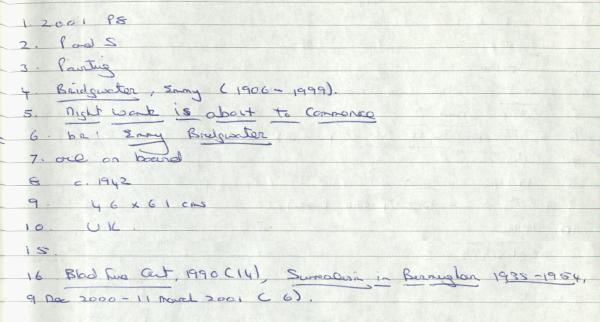 1. 2001 P8
2. P and S
3. Painting
4. Bridgwater, Emmy (1906-1999).
5. Night Work is about to Commence
6. br: Emmy Bridgwater
7. oil on board
8 c. 1942
9 46 x 61 cms
10 UK
15.
16 1990 (14), Surrealism in Birmingham 1935-1954,
9 Dec 2000 - 11 March 2001 (6).